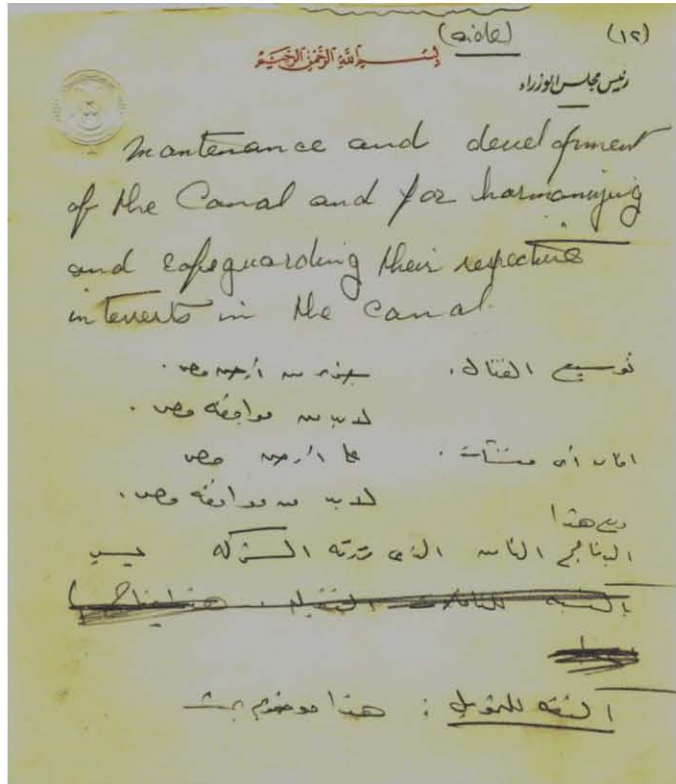 (12)
بسم الله الرحمن الرحيم
رئيس مجلس الوزراء
mantenance and development
of the Canal and for harmonizing
and safeguarding their respective
interests in the canal.
توسيع القنال . جزء من أرض مصر .
لابد من موافقة مصر .
أي منشآت . على أرض مصر
لابد من موافقة مصر .
ومع هذا
البرنامج الثامن الذى قررته الشركة
بالنسبة للناقلات
: هذا موضوع بحث